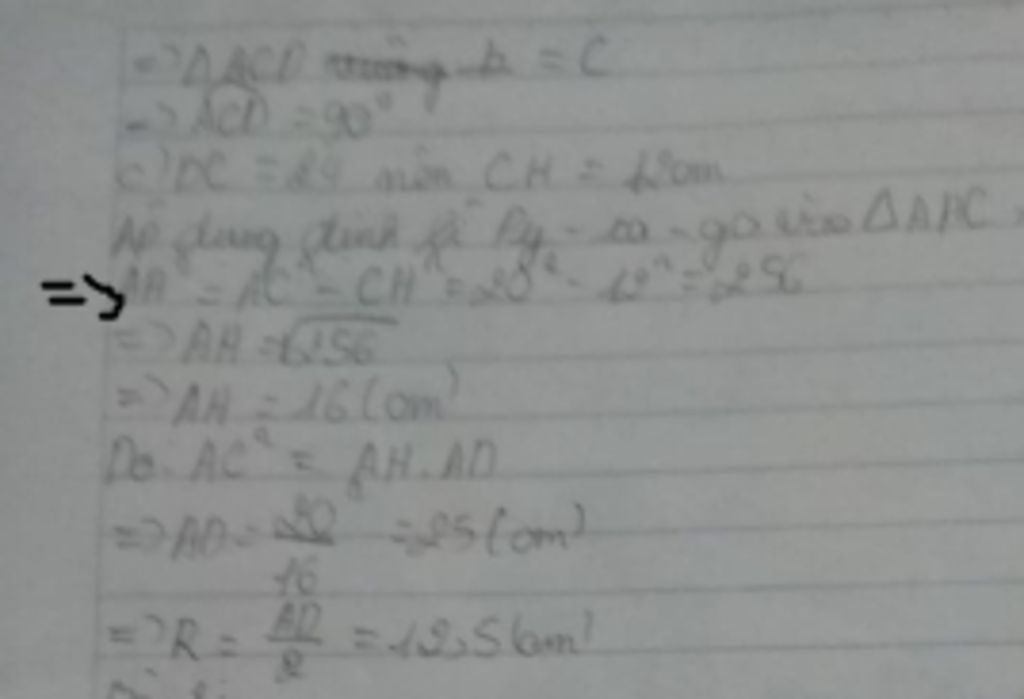 => ΔACD = C
=> ACD = 90°
=> BC = 24 nên CH = 12cm
Áp dụng định lí Py-ta-go vào ΔAHC
=> AH² = AC² - CH² = 20² - 12² = 256
=> AH = √256
=> AH = 16 (cm)
Do AC² = AH.AD
=> AD = 20²/16 = 25 (cm)
=> R = AD/2 = 12,5 (cm)